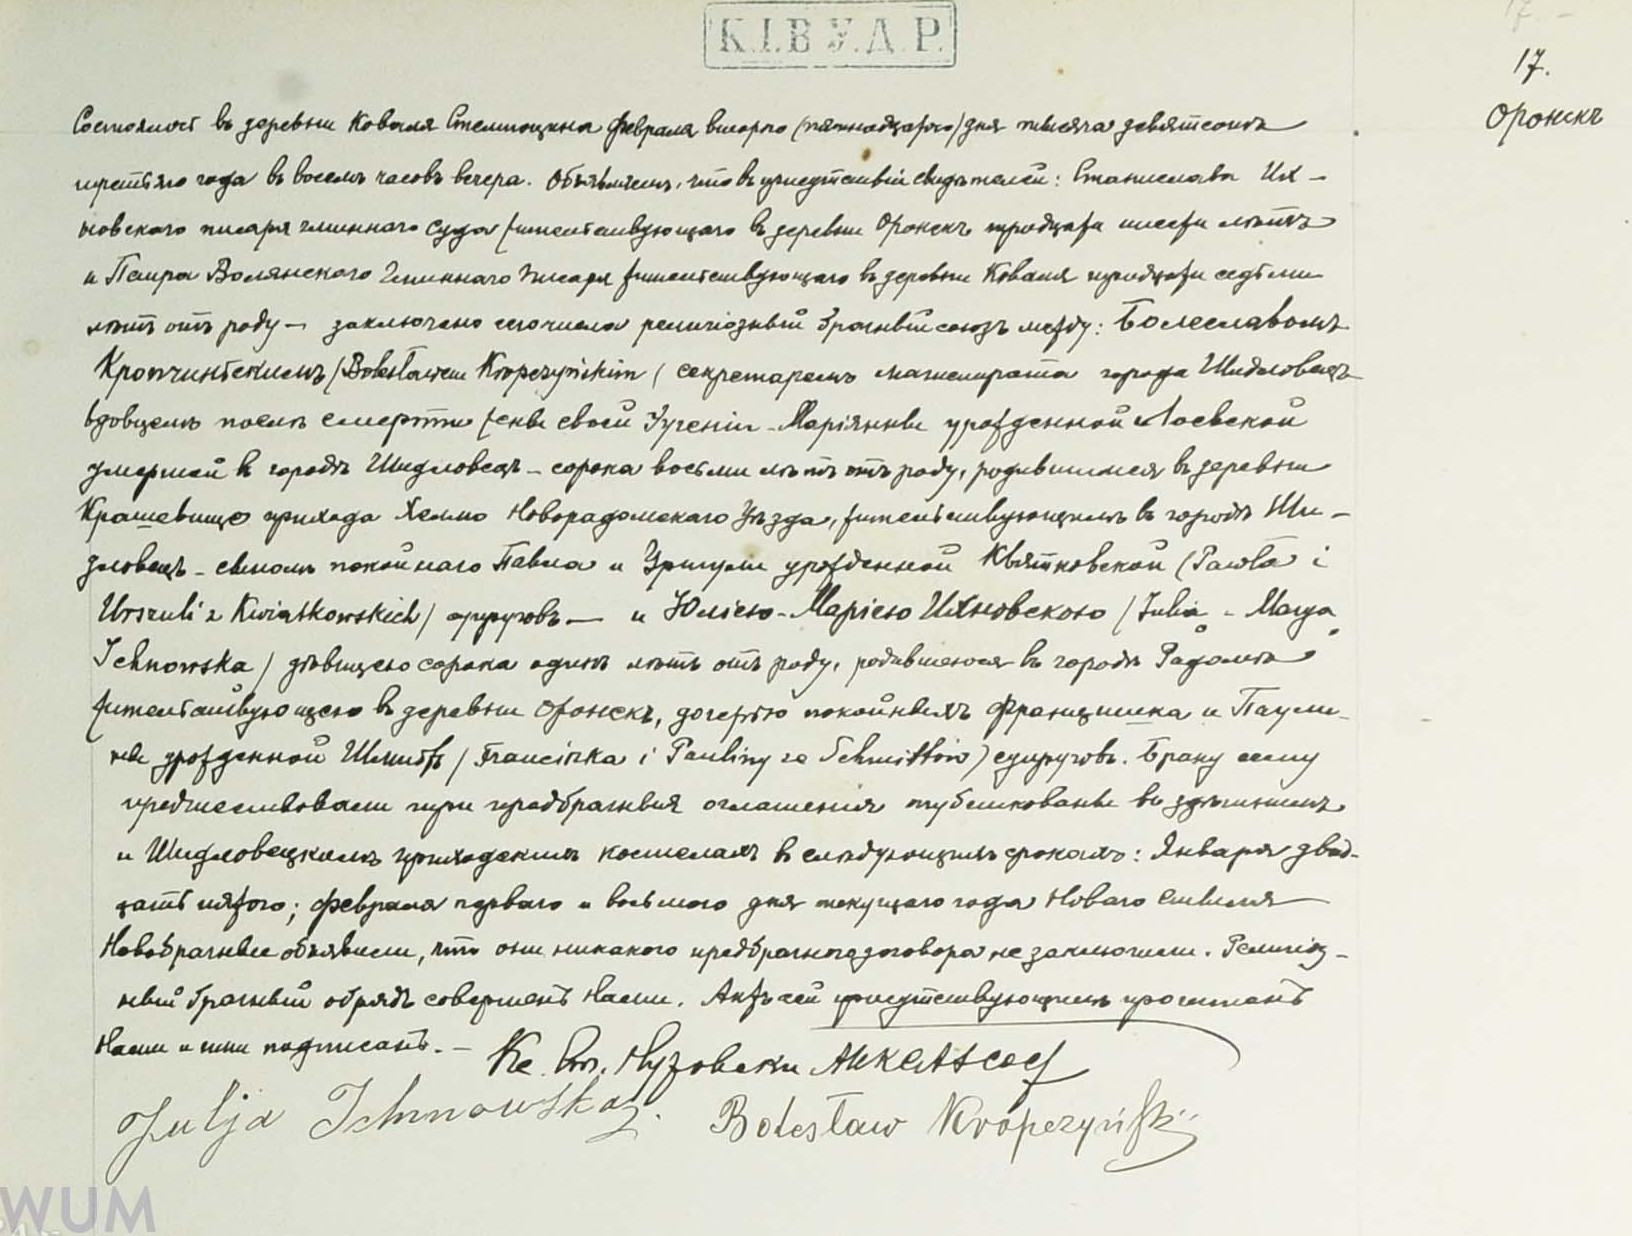 К.І.В У.Д.Р.
17.
17.
Оронскъ
Состоялось въ деревни Коваля Стемпоцина Февраля второго (пятнадцатого) дня тысяча девятсотъ
третьяго года въ восемь часовъ вечера. Объявляемъ, что въ присутствіи свидѣтелей: Станислава Их-
новского писаря гминнаго суда жительствующаго въ деревни Оронскъ тридцати шести лѣтъ
и Петра Волянского Гминнаго Писаря жительствующаго въ деревни Коваля тридцати седьми
лѣтъ отъ роду – заключено сего числа религіозный брачный союзъ между: Болеславомъ
Кропчинскимъ (Bolesławem Kropczyńskim) секретаремъ магистрата города Шидловецъ
вдовцемъ послѣ смерти жены своей Эугеніи-Маріянны урожденной Лоевской
умершей въ городѣ Шидловецъ – сорока восьми лѣтъ отъ роду, родившимся въ деревни
Крашевице прихода Хелмо Новорадомскаго Уѣзда, жительствующимъ въ городѣ Ши-
дловецъ – сыномъ покойнаго Павла и Уршули урожденной Квятковской (Pawła i
Urszuli z Kwiatkowskich) супруговъ – и Юліею-Маріею Ихновскою (Julia - Marya
Ichnowska) дѣвицею сорока одинъ лѣтъ отъ роду, родившеюся въ городѣ Радомѣ
жительствующею въ деревни Оронскъ, дочерью покойныхъ Францишка и Паули-
ны урожденной Шмитъ (Franciszka i Pauliny ze Schmittów) супруговъ. Браку сему
предшествовали три предбрачныя оглашенія публикованы въ здѣшнимъ
и Шидловецкимъ приходскимъ костелахъ въ слѣдующихъ срокахъ: Января двад-
цать пятого; Февраля перваго и восьмого дня текущаго года Новаго стиля
Новобрачные объявили, что они никакого предбрачнаго договора не заключили. Религіоз-
ный брачный обрядъ совершенъ Нами. Актъ сей присутствующимъ прочитанъ
Нами и ими подписанъ. –
Кс.
Julja Ichnowska.
Bolesław Kropczyński
WUM